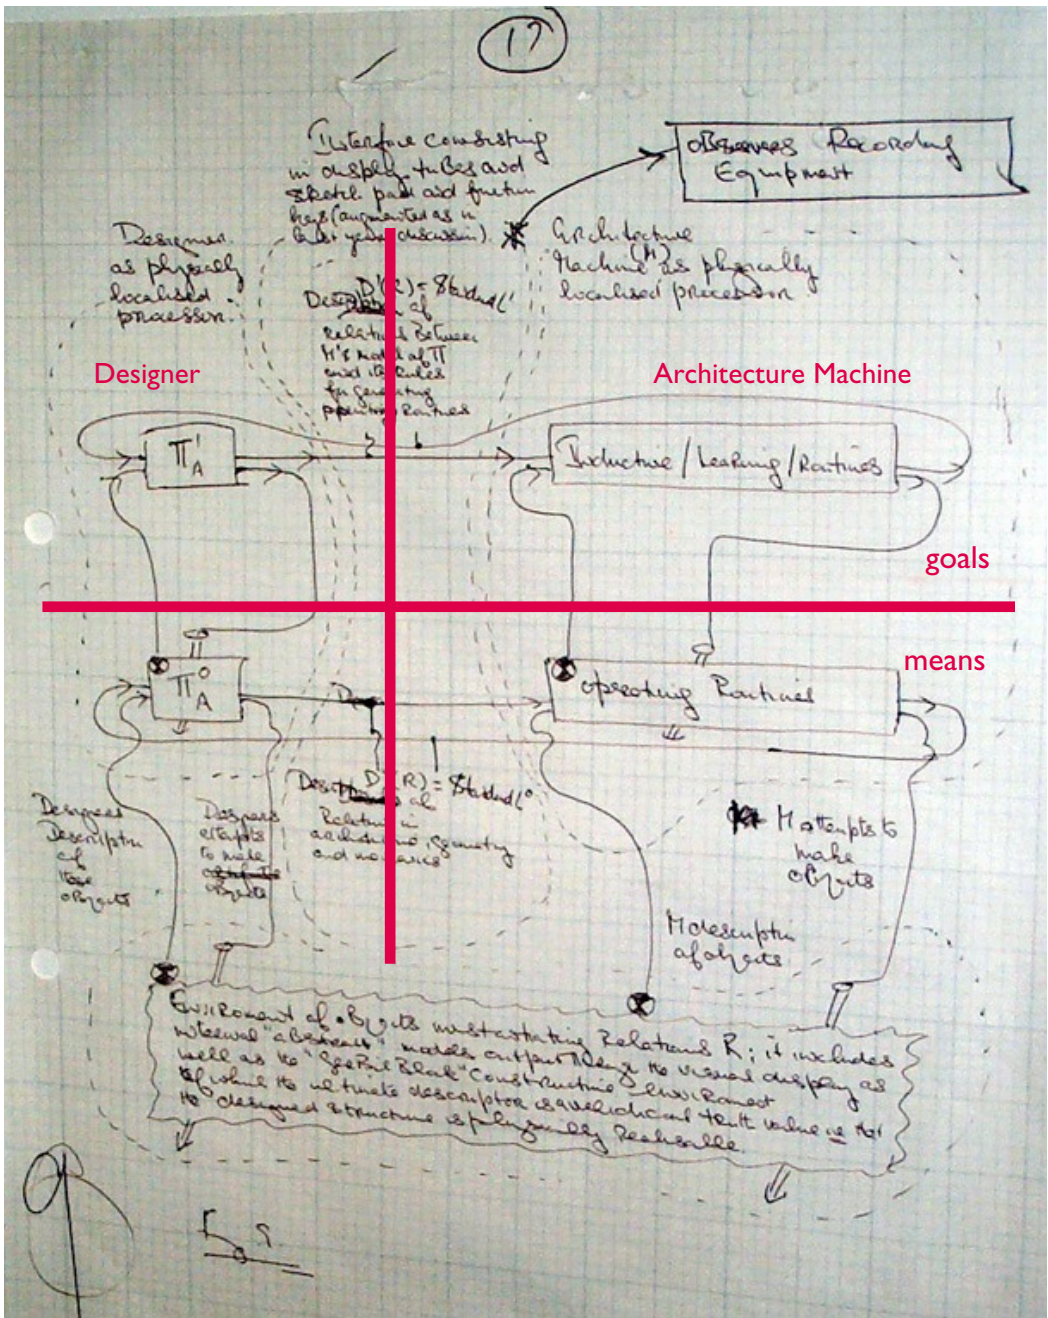 17
Interface consisting
in display tubes and
sketch pad and function
keys (augmented as in
last years discussion).
Observers Recording
Equipment
Designer
as physically
localised
processor.
Architecture
(M)
Machine as physically
localised processor
D'(R) = Standard L'
of
relations between
M's model of π
and its rules
for generating
operating Routines
Designer
Architecture Machine
π¹A
Inductive / Learning / Routines
goals
means
π⁰A
Operating Routines
D (R) = Standard L⁰
Relations in
geometry
and mechanics
Designers
Description
of
these
objects
Designers
attempts
to make
objects
M attempts to
make
objects
M description
of objects
Environment of objects instantiating Relations R; it includes
internal "abstract" models output through the visual display as
well as the "Block" Construction Environment
of which the ultimate descriptor is a veridical truth value is the
designed structure is physically Realisable.